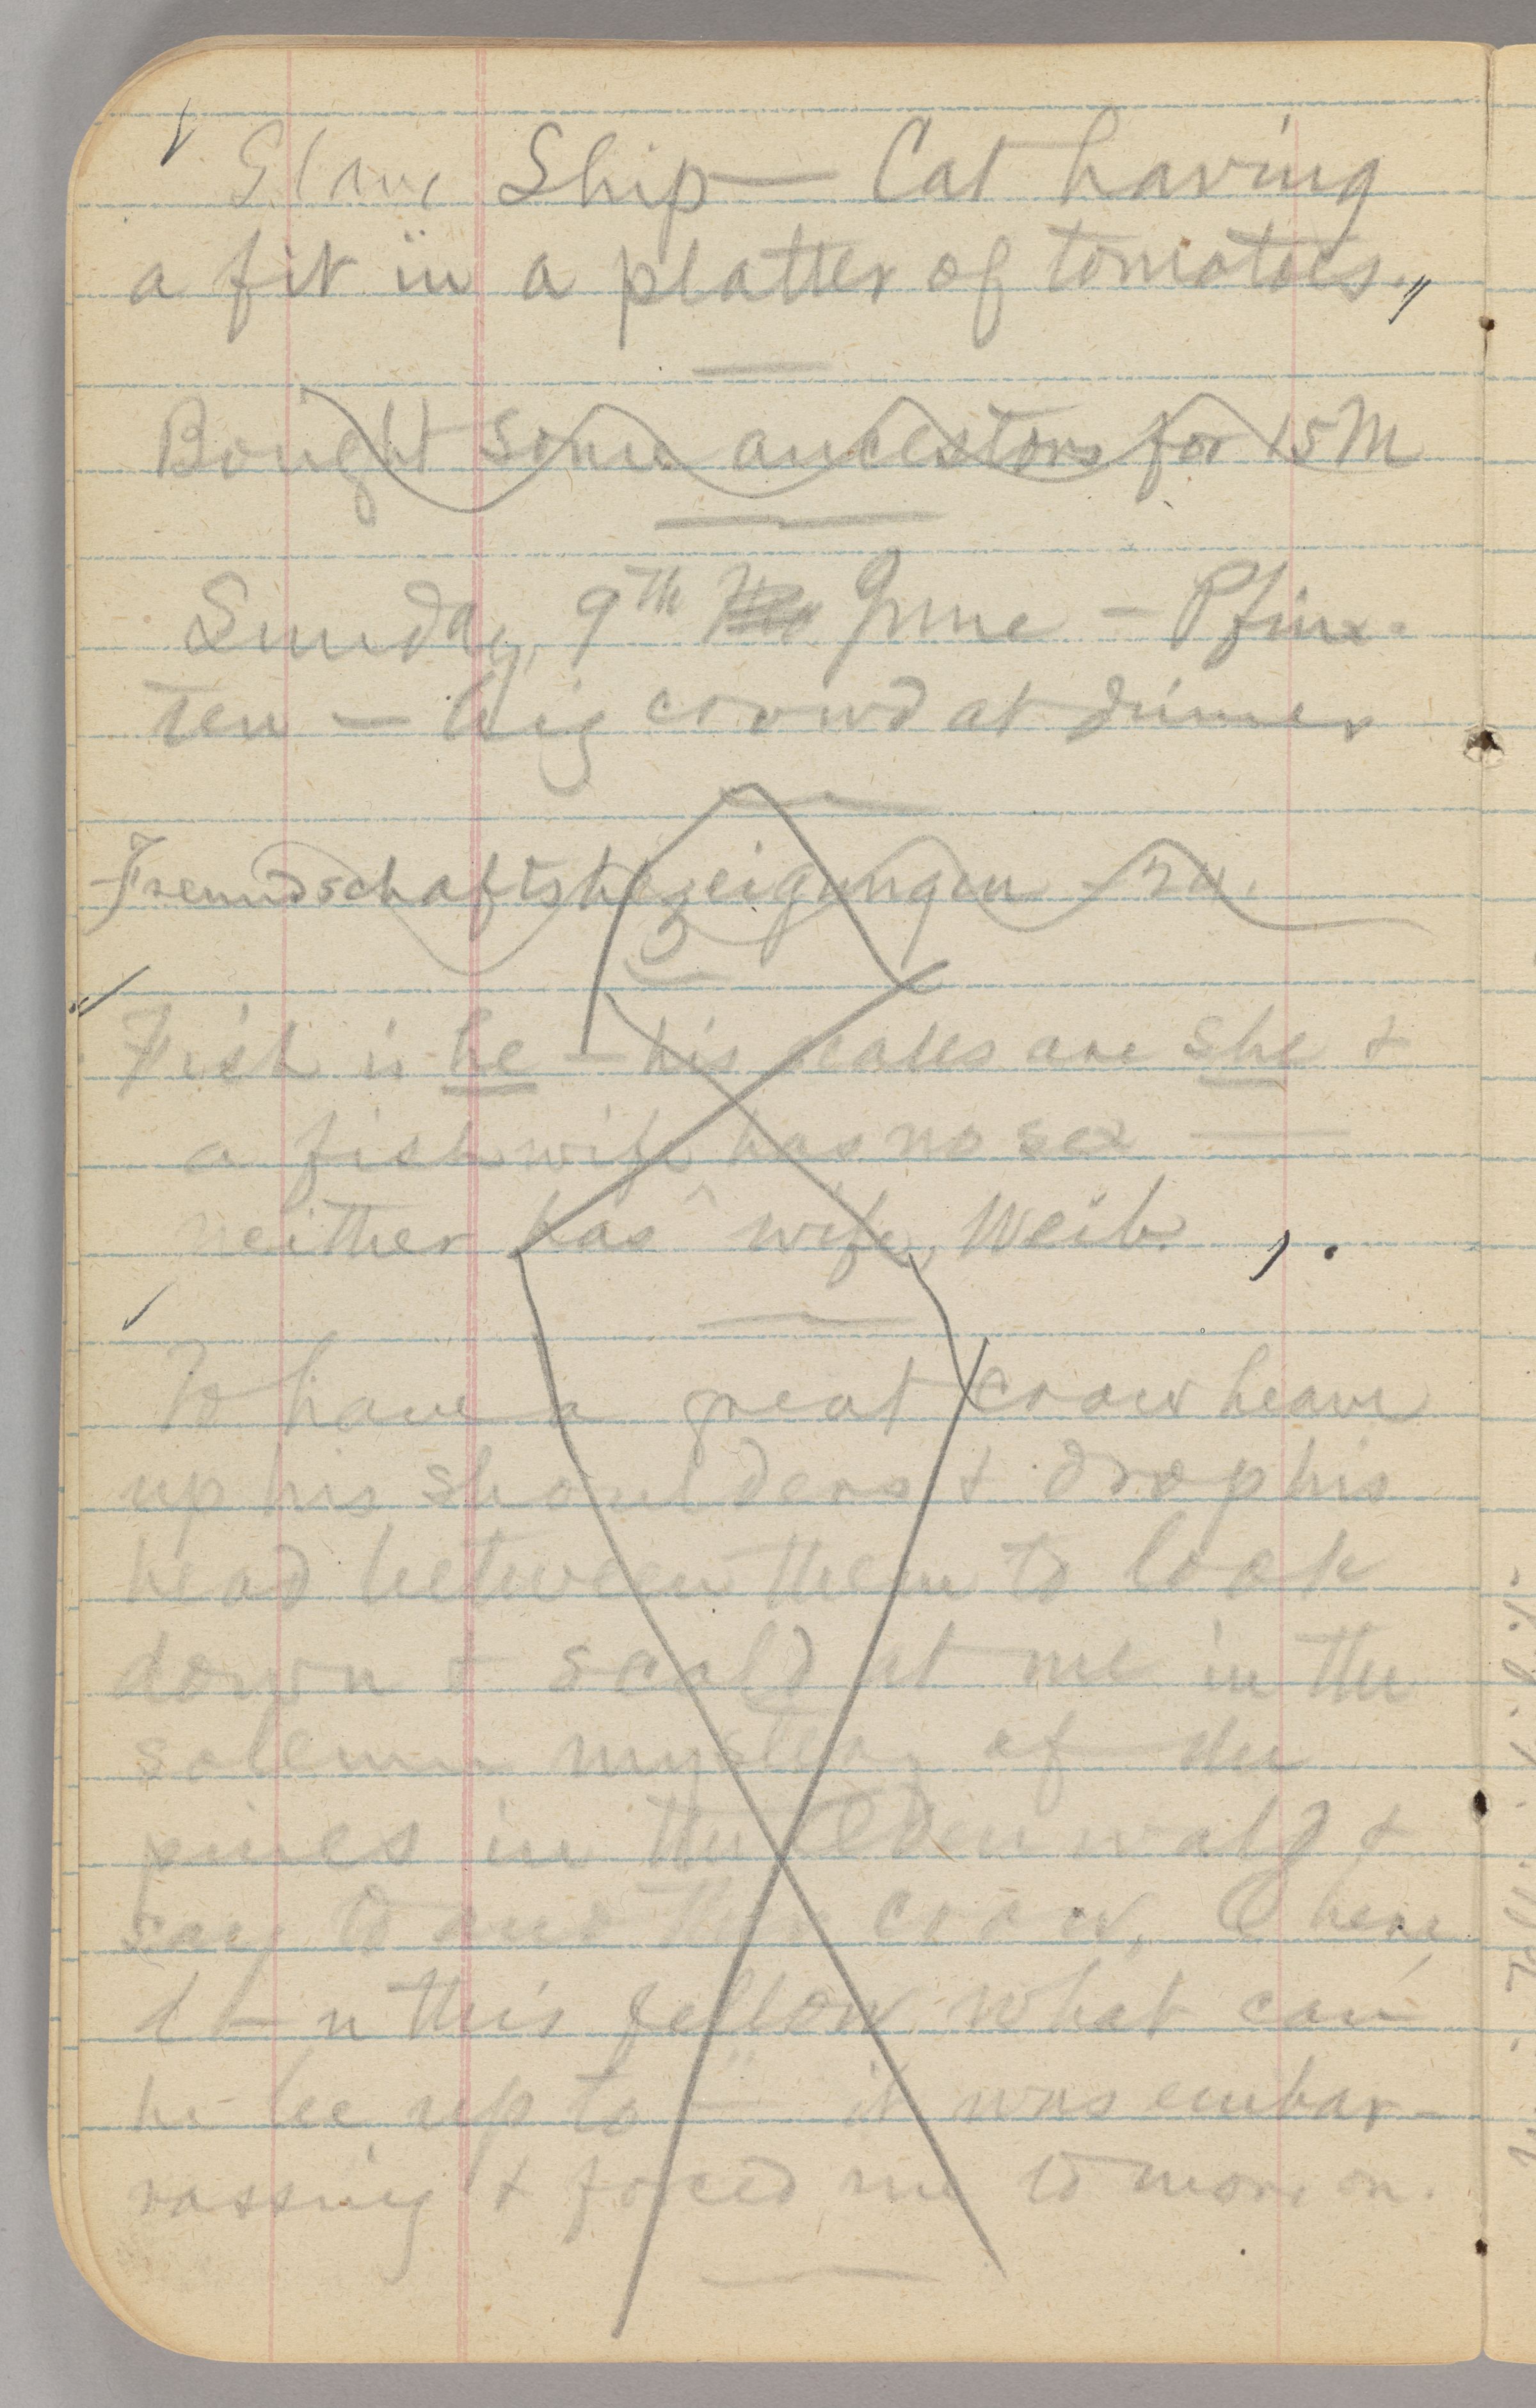 Slave Ship — Cat having
a fit in a platter of tomatoes.
Bought some ancestors for 15M
Sunday, 9th June — Pfinx-
ten — big crowd at dinner
Freundschaftsbezeigungen
Fish is he — his scales are she &
a fishwife has no sex
neither has wife, Weib.
To have a great crow heave
up his shoulders & drop his
head between them to look
down & scold at me in the
solemn mystery of the
pines in the Odenwald & 
say to another crow, O here
d—n this fellow what can
he be up to — it was embar-
rassing & forced me to move on.